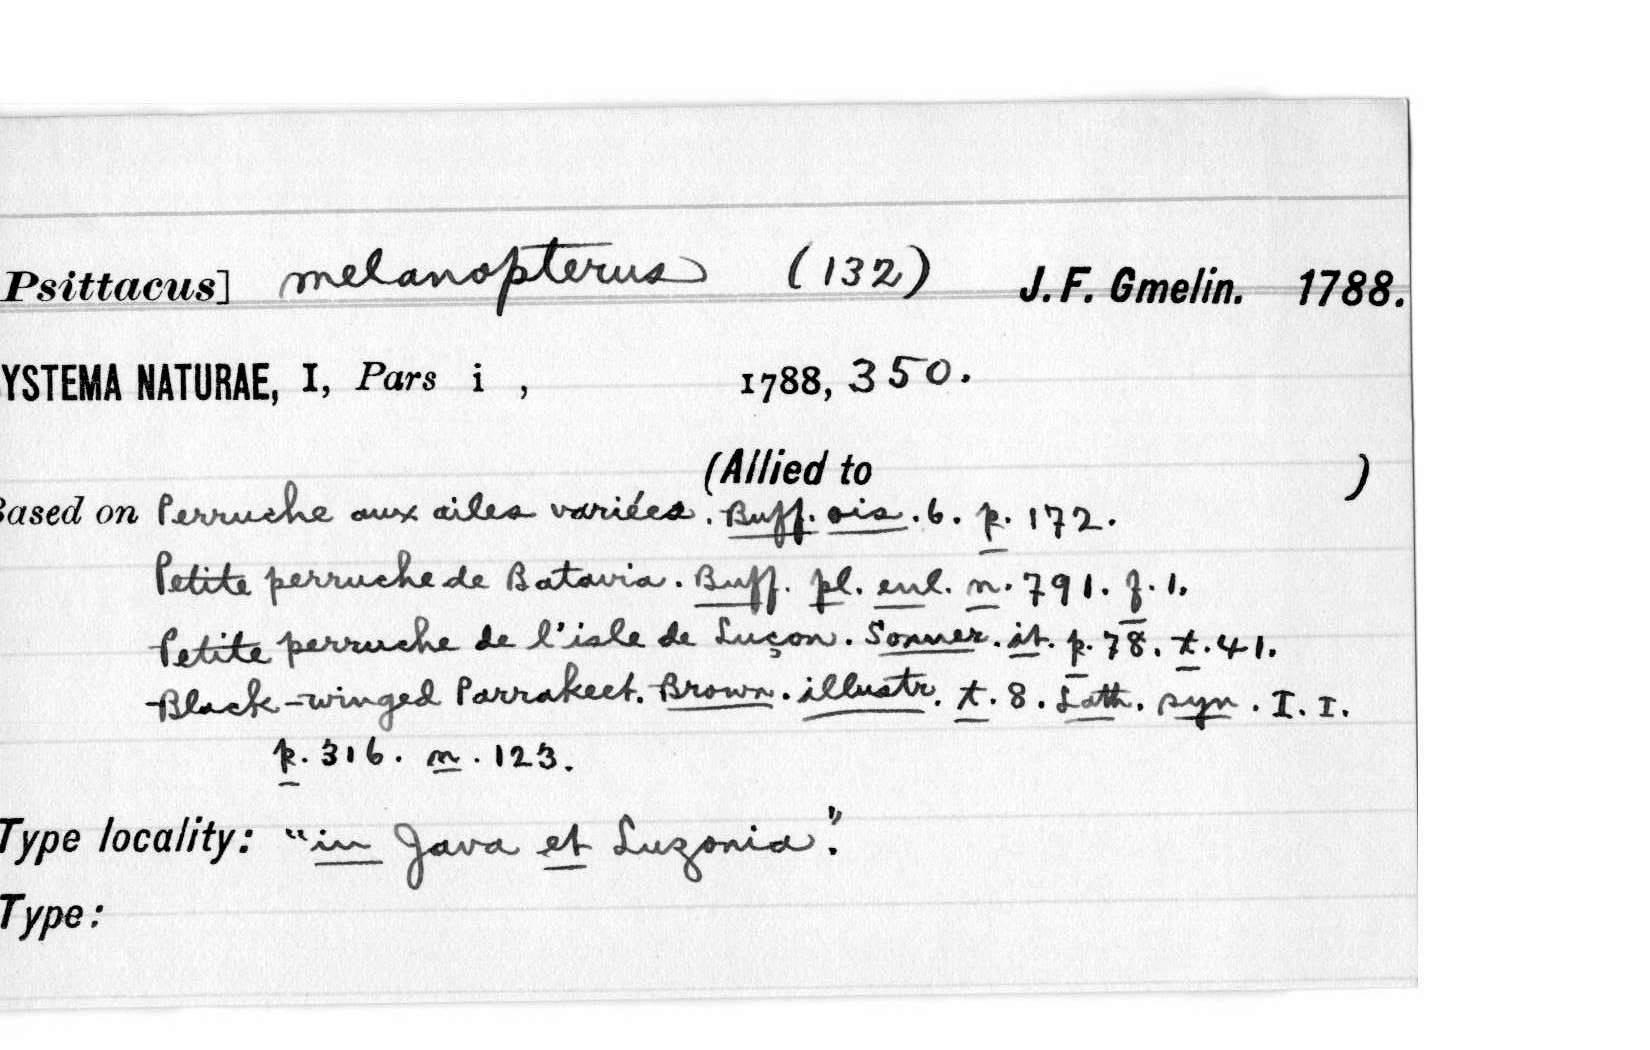 Psittacus] melanopterus (132) J. F. Gmelin. 1788.
YSTEMA NATURAE, I, Pars i , 1788, 350.
(Allied to )
Based on Perruche aux ailes variées. Buff. ois. 6. p. 172.
Petite perruche de Batavia. Buff. pl. enl. n. 791. f. 1.
Petite perruche de l'isle de Luçon. Sonner. it. p. 78. t. 41.
Black-winged Parrakeet. Brown. illustr. t. 8. Lath. syn. I. I.
p. 316. n. 123.
Type locality: "in Java et Luzonia".
Type: